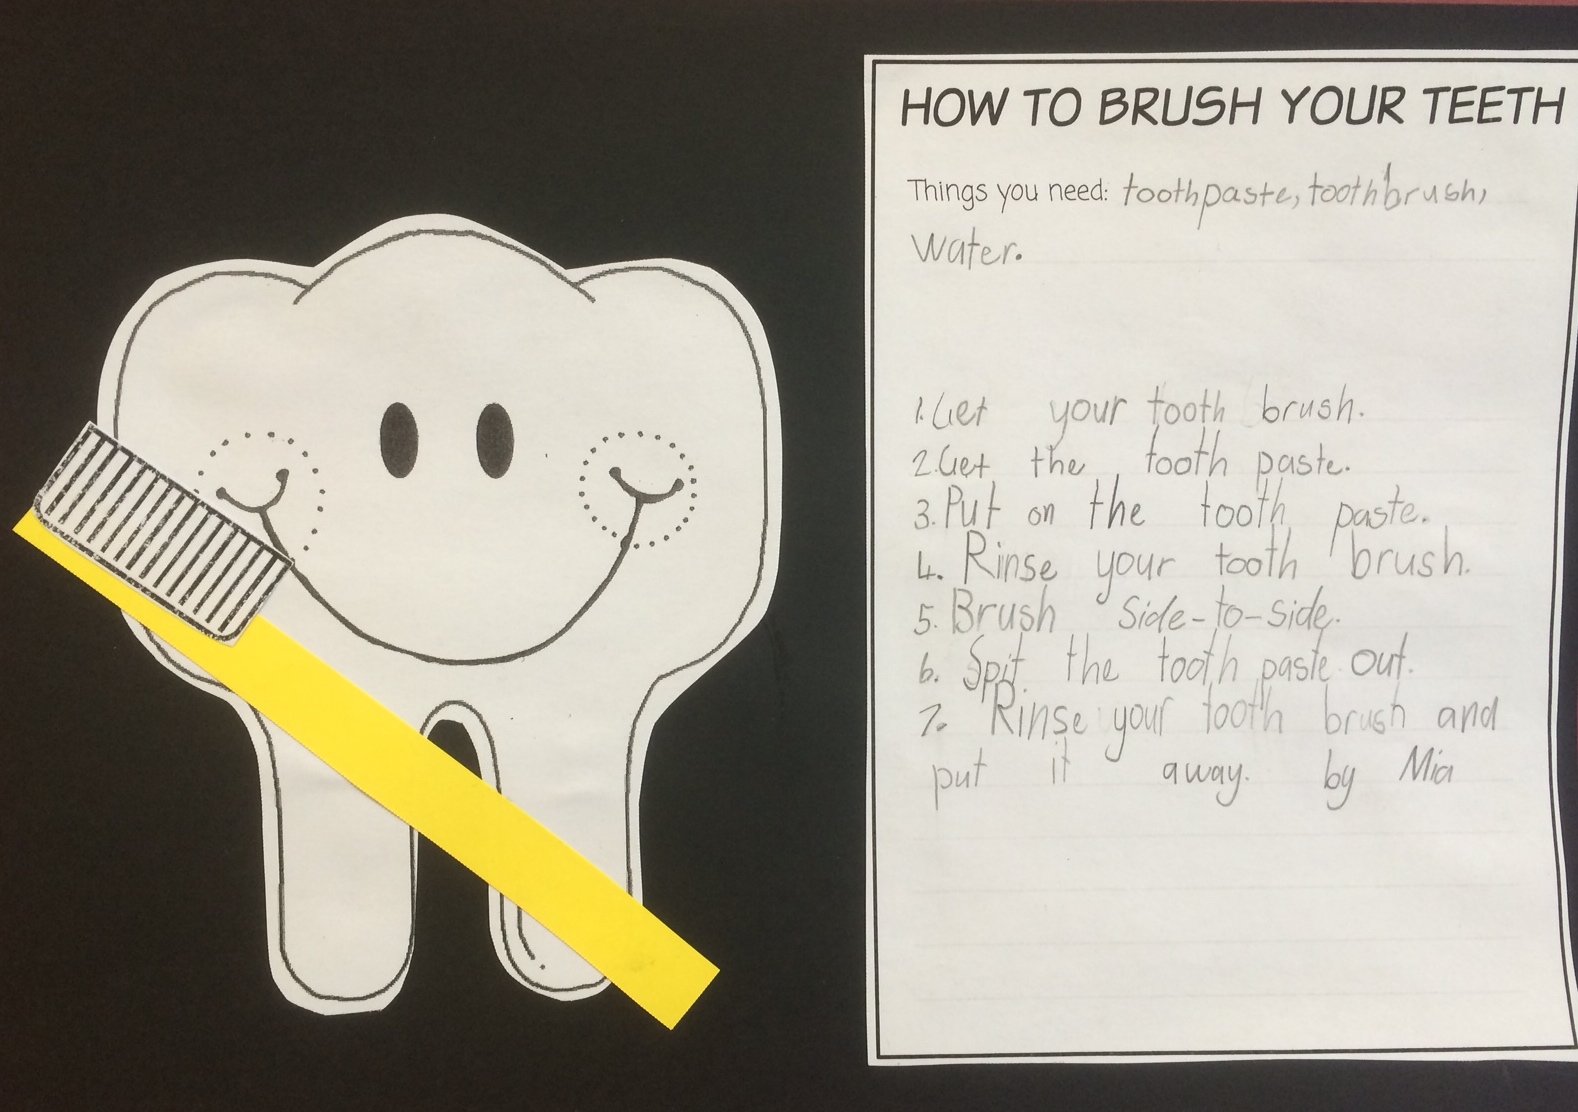 HOW TO BRUSH YOUR TEETH
Things you need: toothpaste, toothbrush,
water.
1. Get your tooth brush.
2. Get the tooth paste.
3. Put on the tooth paste.
4. Rinse your tooth brush.
5. Brush Side-to-side.
6. Spit the tooth paste out.
7. Rinse your tooth brush and
put it away. by Mia